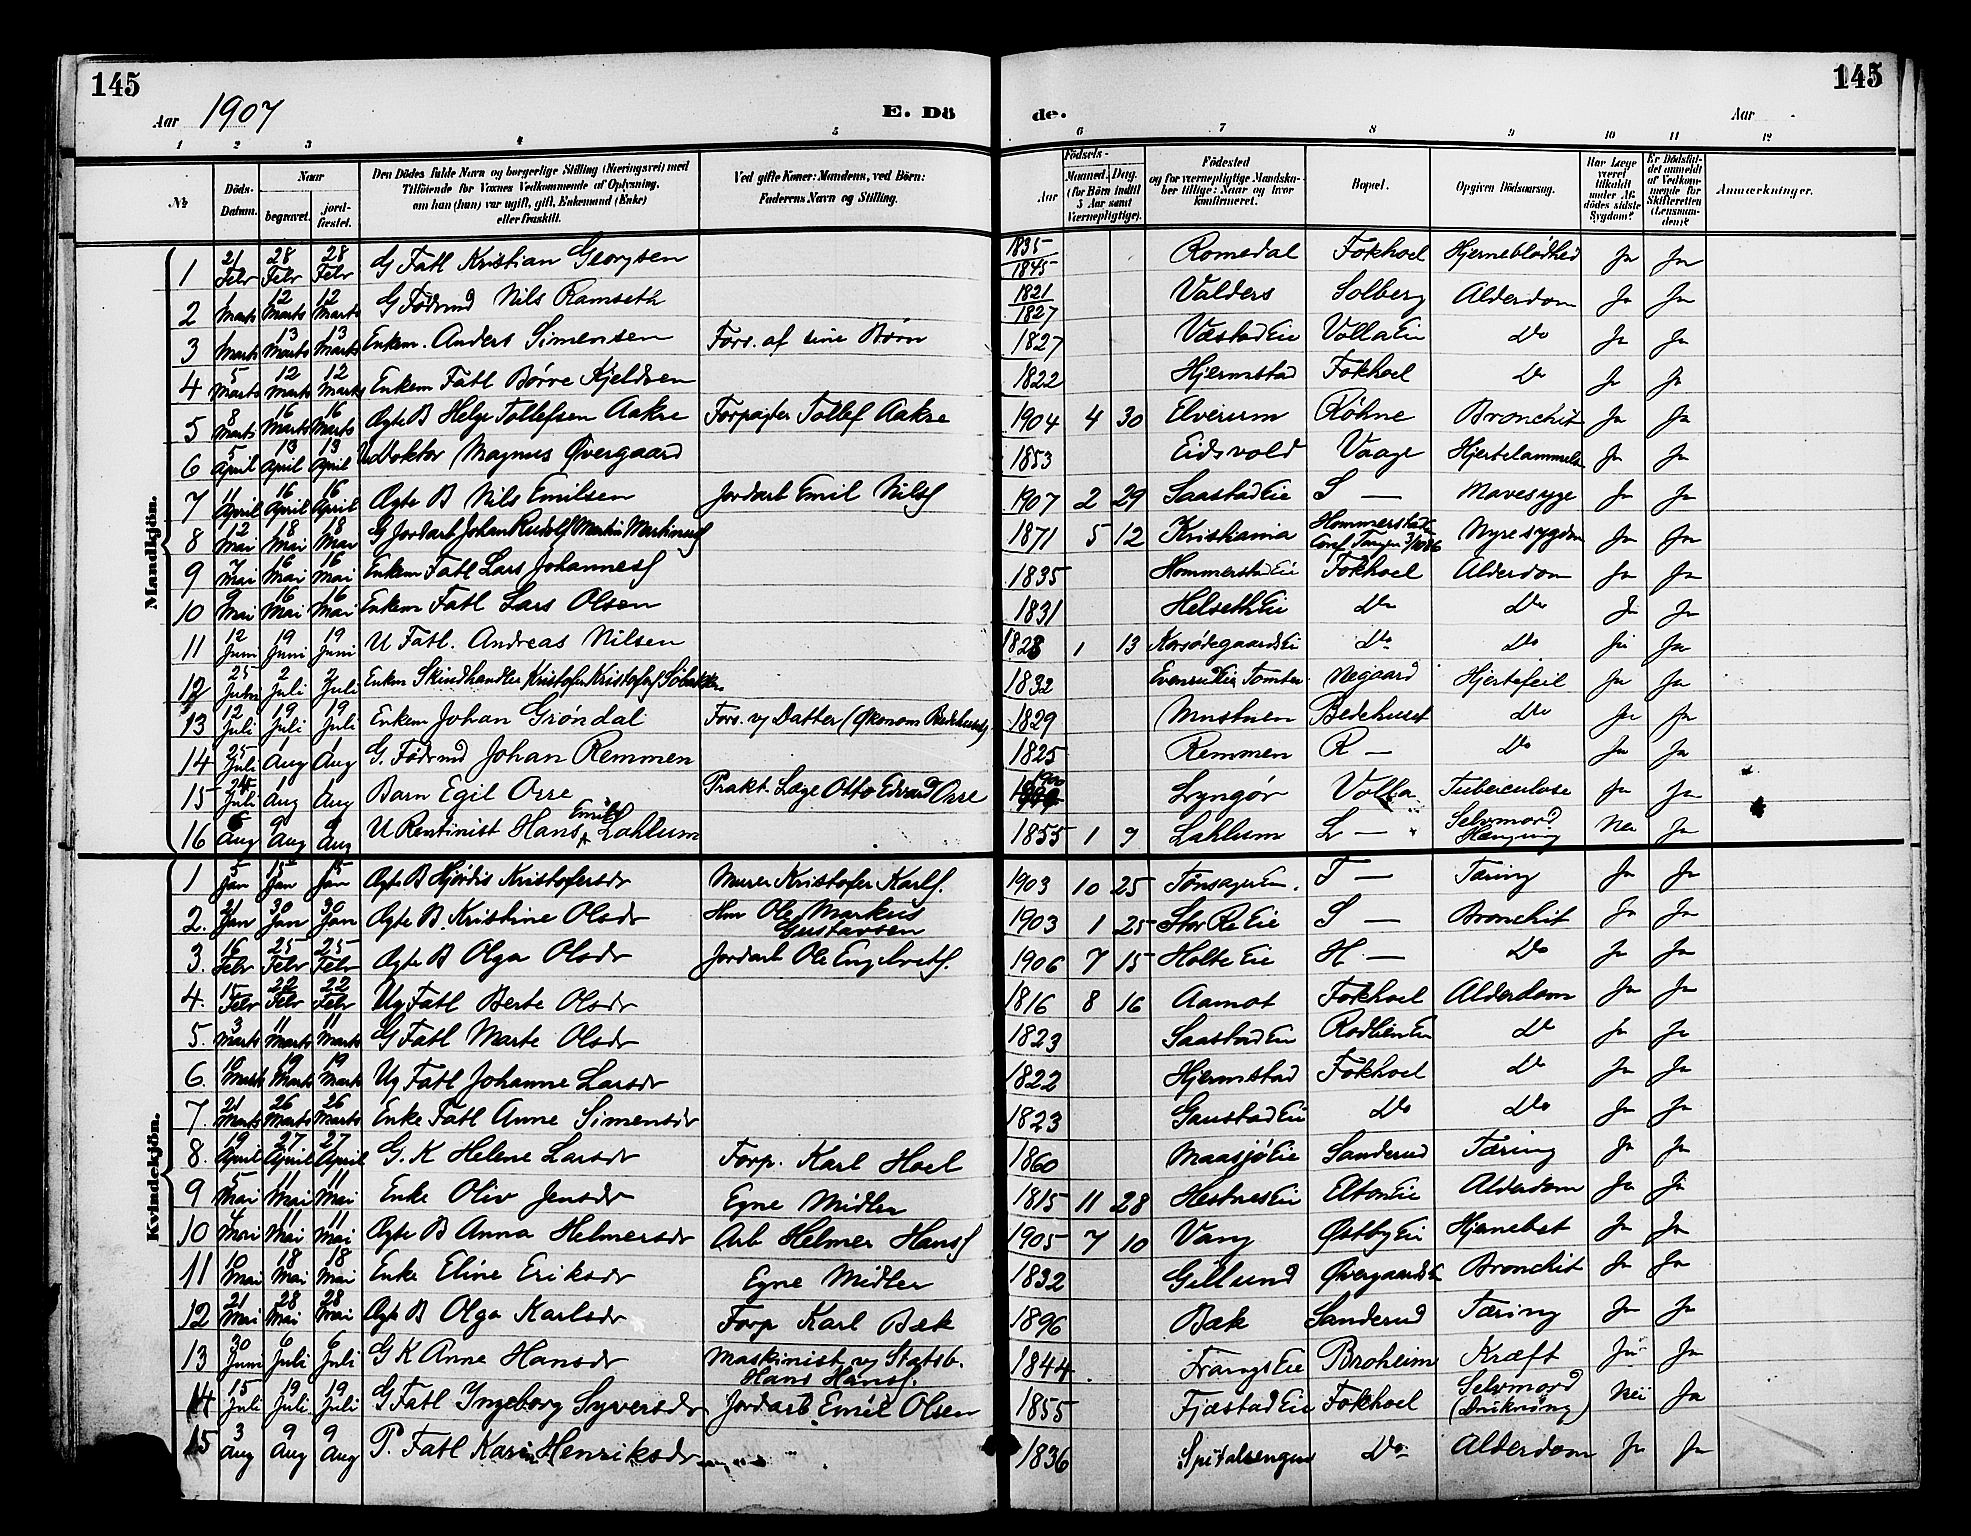 145
145
Aar 1907
E. Dö
de.
Aar
1 2 3 4 5 6 7 8 9 10 11 12
No
Döds-Datum.
Naar
begravet.
jord-fæstet.
Den Dödes fulde Navn og borgerlige Stilling (Næringsvei) med
Tilföiende for Voxnes Vedkommende af Oplysning,
om han (hun) var ugift, gift, Enkemand (Enke)
eller fraskilt.
Ved gifte Koner: Mandens, ved Börn:
Faderens Navn og Stilling.
Födsels-
Aar
Maaned. Dag.
(for Börn indtil
5 Aar samt
Værnepligtige).
Födested
og for værnepligtige Mandska-
ber tillige: Naar og hvor
konfirmeret.
Bopæl.
Opgiven Dödsaarsag.
Har Læge
været
tilkaldt
under Af-
dödes sidste
Sygdom?
Er Dödsfal-
det anmeldt
af Vedkom-
mende for
Skifteretten
(Lensman-
den)?
Anmærkninger.
Mandkjön.
1 21 Febr 28 Febr 28 Febr G Fatl Kristian Georgsen 1835 1845 Romedal Fokhoel Hjerneblødhed Ja Ja
2 Marts 12 Marts 12 Marts G Fødrnd Nils Ramseth 1821 1827 Valders Solberg Alderdom Ja Ja
3 Marts 13 Marts 13 Marts Enkem. Anders Simensen Fors. af sine Børn 1827 Væstad Eie Volla Eie Do Ja Ja
4 5 Marts 12 Marts 12 Marts Enkem Fatl Børre Kjeldsen 1822 Hjermstad Fokhoel Do Ja Ja
5 8 Marts 16 Marts 16 Marts Ægte B Helge Tollefsen Aakre Forpagter Tollef Aakre 1904 4 30 Elverum Køhne Bronchit Ja Ja
6 5 April 13 April 13 April U Doktor Magnus Øvergaard 1853 Eidsvold Vaage Hjertelammelse Ja Ja
7 11 April 16 April 16 April Ægte B Nils Emilsen Jordarb Emil Nils 1907 2 29 Saastad Eie S — Mavesyge Ja Ja
8 12 Mai 18 Mai 18 Mai G Jordarb Johan Rudolf Martin Martinus 1871 5 12 Kristiania Hommerstad Conf Tangen Nyresygdom Ja Ja
9 7 Mai 16 Mai 16 Mai Enkem Fatl Lars Johannes 1835 Hommerstad Eie Fokhoel Alderdom Ja Ja
10 9 Mai 16 Mai 16 Mai Enkem Fatl Lars Olsen 1831 Helseth Eie Do Do Ja Ja
11 12 Juni 19 Juni 19 Juni U Fatl. Andreas Nilsen 1828 1 13 Korsødegaards Ei Do Do Ja Ja
12 25 Juni 2 Juli 2 Juli Enkem Skindhandler Kristofer Kristofers 1832 Tomter Negaard Hjertefeil Ja Ja
13 12 Juli 19 Juli 19 Juli Enkem Johan Grøndal Fors. v/ Datter (Økonom Bedehuset) 1829 Mustuen Bedehuset Do Ja Ja
14 25 Juli 1 Aug 1 Aug G. Fødrnd Johan Remmen 1825 Remmen R — Do Ja Ja
15 24 Juli 1 Aug 1 Aug Barn Egil Orre Prakt. Læge Otto Edvard Orre Lyngør Volla Tuberculose Ja Ja
16 6 Aug 9 Aug 9 Aug U Rentinist Hans Emil Lahlum 1855 1 9 Lahlum L — Selvmord Hængning Nei Ja
Kvindekjön.
1 5 Jan 15 Jan 15 Jan Ægte B Hjørdis Kristofersdr Murer Kristofer Karls. 1903 10 25 Tønsager Eie. T — Tæring Ja Ja
2. 21 Jan 30 Jan 30 Jan Ægte B. Kristine Olsdr Hm Ole Markus Gustavsen 1903 1 25 Stor Re Eie S — Bronchit Ja Ja
3. 16 Febr 25 Febr 25 Febr Ægte B Olga Olsdr Jordarb Ole Engebrets. 1906 7 15 Holte Eie H — Do Ja Ja
4. 15 Febr 22 Febr 22 Febr Ug Fatl Berte Olsdr 1816 8 16 Aamot Fokhoel Alderdom Ja Ja
5. 3 Marts 11 Marts 11 Marts G Fatl Marte Olsdr 1823 Saastad Eie Rodlien Eie Do Ja Ja
6. 10 Marts 19 Marts 19 Marts Ug Fatl Johanne Larsdr 1822 Hjermstad Fokhoel Do Ja Ja
7. 21 Marts 26 Marts 26 Marts Enke Fatl Anne Simensdr 1823 Gaustad Eie Do Do Ja Ja
8. 19 April 27 April 27 April G. K Helene Larsdr Forp. Karl Hoel 1860 Maasjø Eie Sanderud Tæring Ja Ja
9 5 Mai 11 Mai 11 Mai Enke Oliv Jensdr Egne Midler 1815 11 28 Hestnes Eie Elton Eie Alderdom Ja Ja
10 4 Mai 11 Mai 11 Mai Ægte B Anna Helmersdr Arb Helmer Hans 1905 7 10 Vang Østby Eie Hjernebet Ja Ja
11 10 Mai 18 Mai 18 Mai Enke Eline Eriksdr Egne Midler 1832 Gillund Øvergaards Bronchit Ja Ja
12 21 Mai 28 Mai 28 Mai Ægte B Olga Karlsdr Forp Karl Bæk 1896 Bæk Sanderud Tæring Ja Ja
13 30 Juni 6 Juli 6 Juli G K Anne Hansdr Maskinist v/ Statsb. Hans Hans. 1844 Frangs Eie Broheim Kræft Ja Ja
14 15 Juli 19 Juli 19 Juli G Fatl Ingeborg Syversdr Jordarb Emil Olsen 1855 Fjæstad Eie Fokhoel Selvmord (Drukning) Nei Ja
15 3 Aug 9 Aug 9 Aug P. Fatl Karin Henriksdr 1836 Spitalsengen Do Alderdom Ja Ja